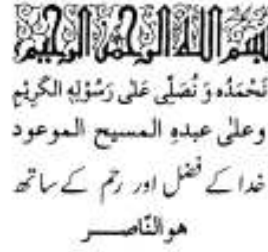 بسم الله الرحمن الرحيم
نَحْمَدُه وَ نُصَلِّی عَلٰی رَسُوْلِهِ الكَرِیْمِ
وعلٰی عبدهِ المسیح الموعود
خدا کے فضل اور رحم کے ساتھ
هو النّاصــر